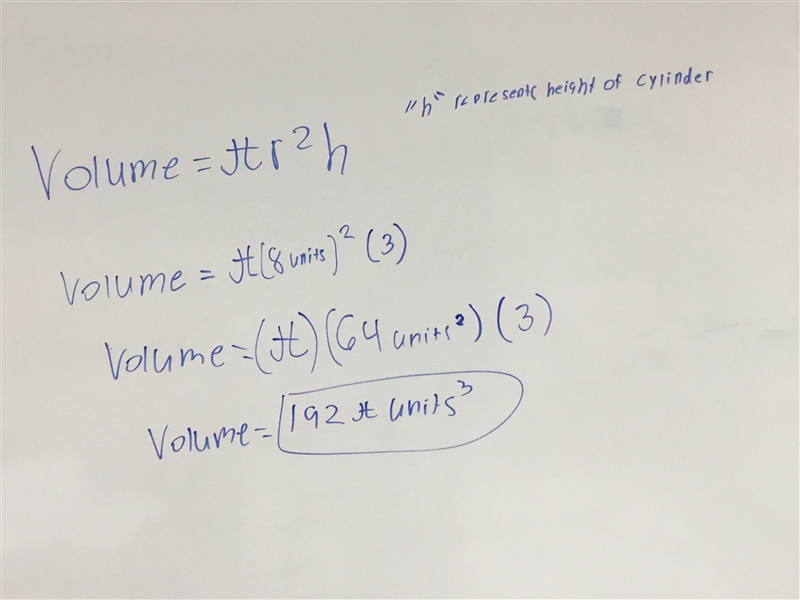 "h" represents height of cylinder
Volume = πr²h
Volume = π(8 units)² (3)
Volume = (π)(64 units²) (3)
Volume = 192 π units³